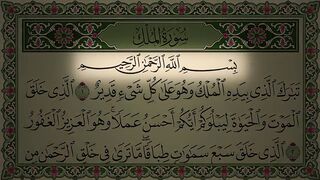 سورة الملك
بِسْمِ اللَّهِ الرَّحْمَٰنِ الرَّحِيمِ
تَبَٰرَكَ الَّذِى بِيَدِهِ الْمُلْكُ وَهُوَ عَلَىٰ كُلِّ شَىْءٍ قَدِيرٌ ١ الَّذِى خَلَقَ
الْمَوْتَ وَالْحَيَوٰةَ لِيَبْلُوَكُمْ أَيُّكُمْ أَحْسَنُ عَمَلًا وَهُوَ الْعَزِيزُ الْغَفُورُ
٢ الَّذِى خَلَقَ سَبْعَ سَمَٰوَٰتٍ طِبَاقًا مَّا تَرَىٰ فِى خَلْقِ الرَّحْمَٰنِ مِن